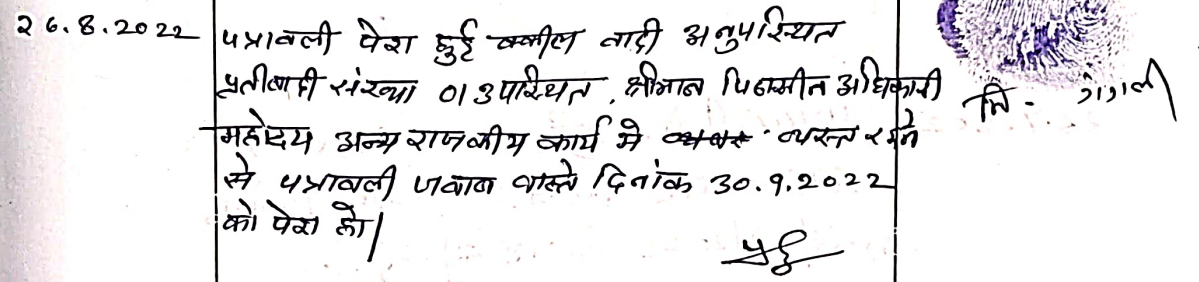 26.8.2022 पत्रावली पेश हुई वकील वादी अनुपस्थित
प्रतीवादी संख्या 01 उपस्थित, श्रीमान पिठासीन अधिकारी
महोदय अन्य राजकीय कार्य मे व्यस्त रहने
से पत्रावली जवाब वास्ते दिनांक 30.9.2022
को पेश हो।
नि -